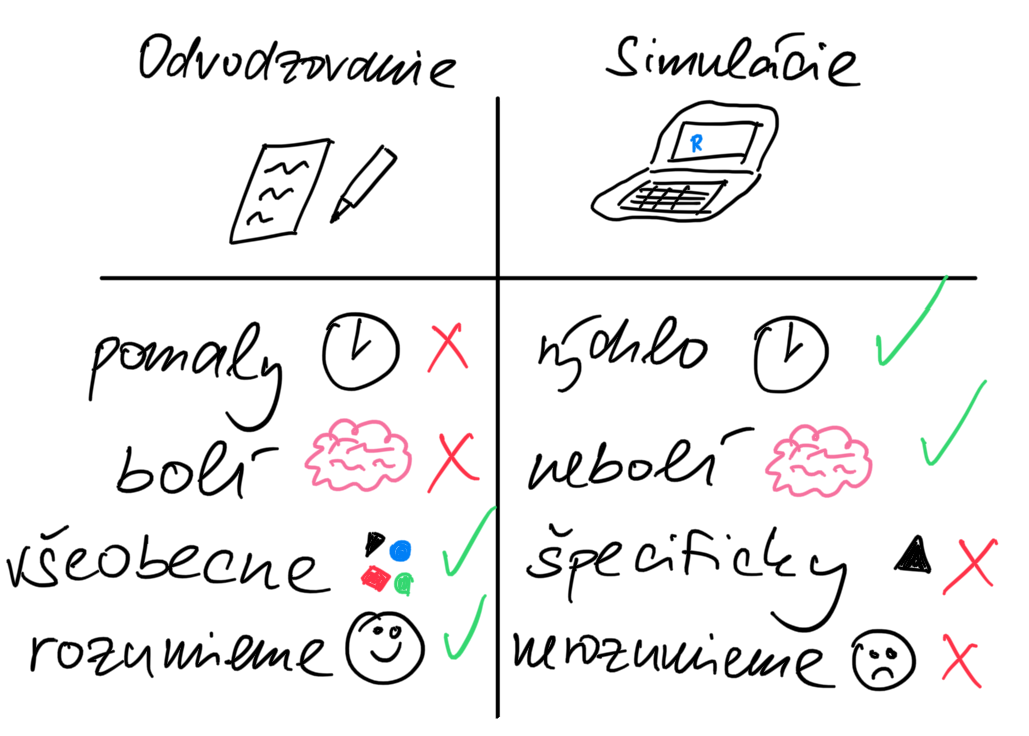 Odvodzovanie
Simulácie
R
pomaly
rýchlo
bolí
nebolí
všeobecne
špecificky
rozumieme
nerozumieme